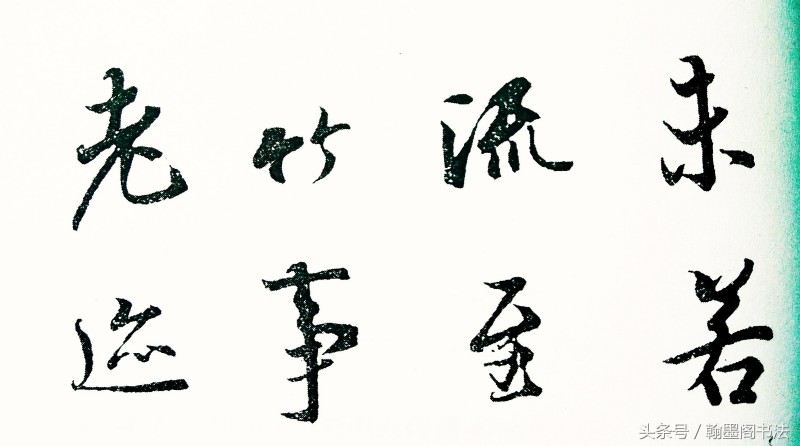 未若
流至
竹事
老迹
头条号 / 翰墨阁书法